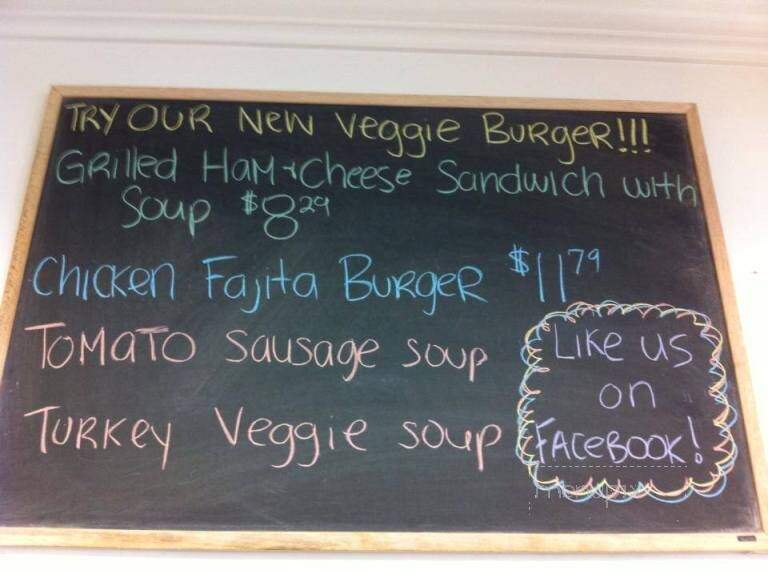 TRY OUR NEW Veggie BURGeR!!!
GRilled HaM + Cheese Sandwich with
Soup $8.29
Chicken Fajita BURGeR $11.79
TOMaTO Sausage soup
TURKey Veggie soup
Like us
on
FaceBOOK!